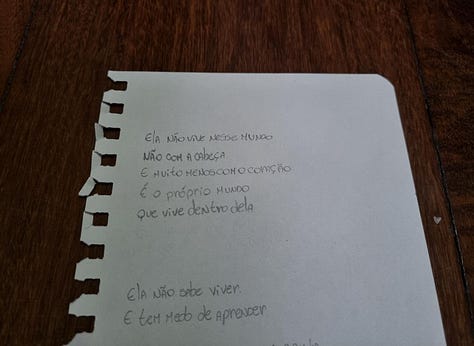 Ela não vive nesse mundo
Não com a cabeça
E muito menos com o coração
É o próprio mundo
Que vive dentro dela
Ela não sabe viver.
E tem medo de aprender